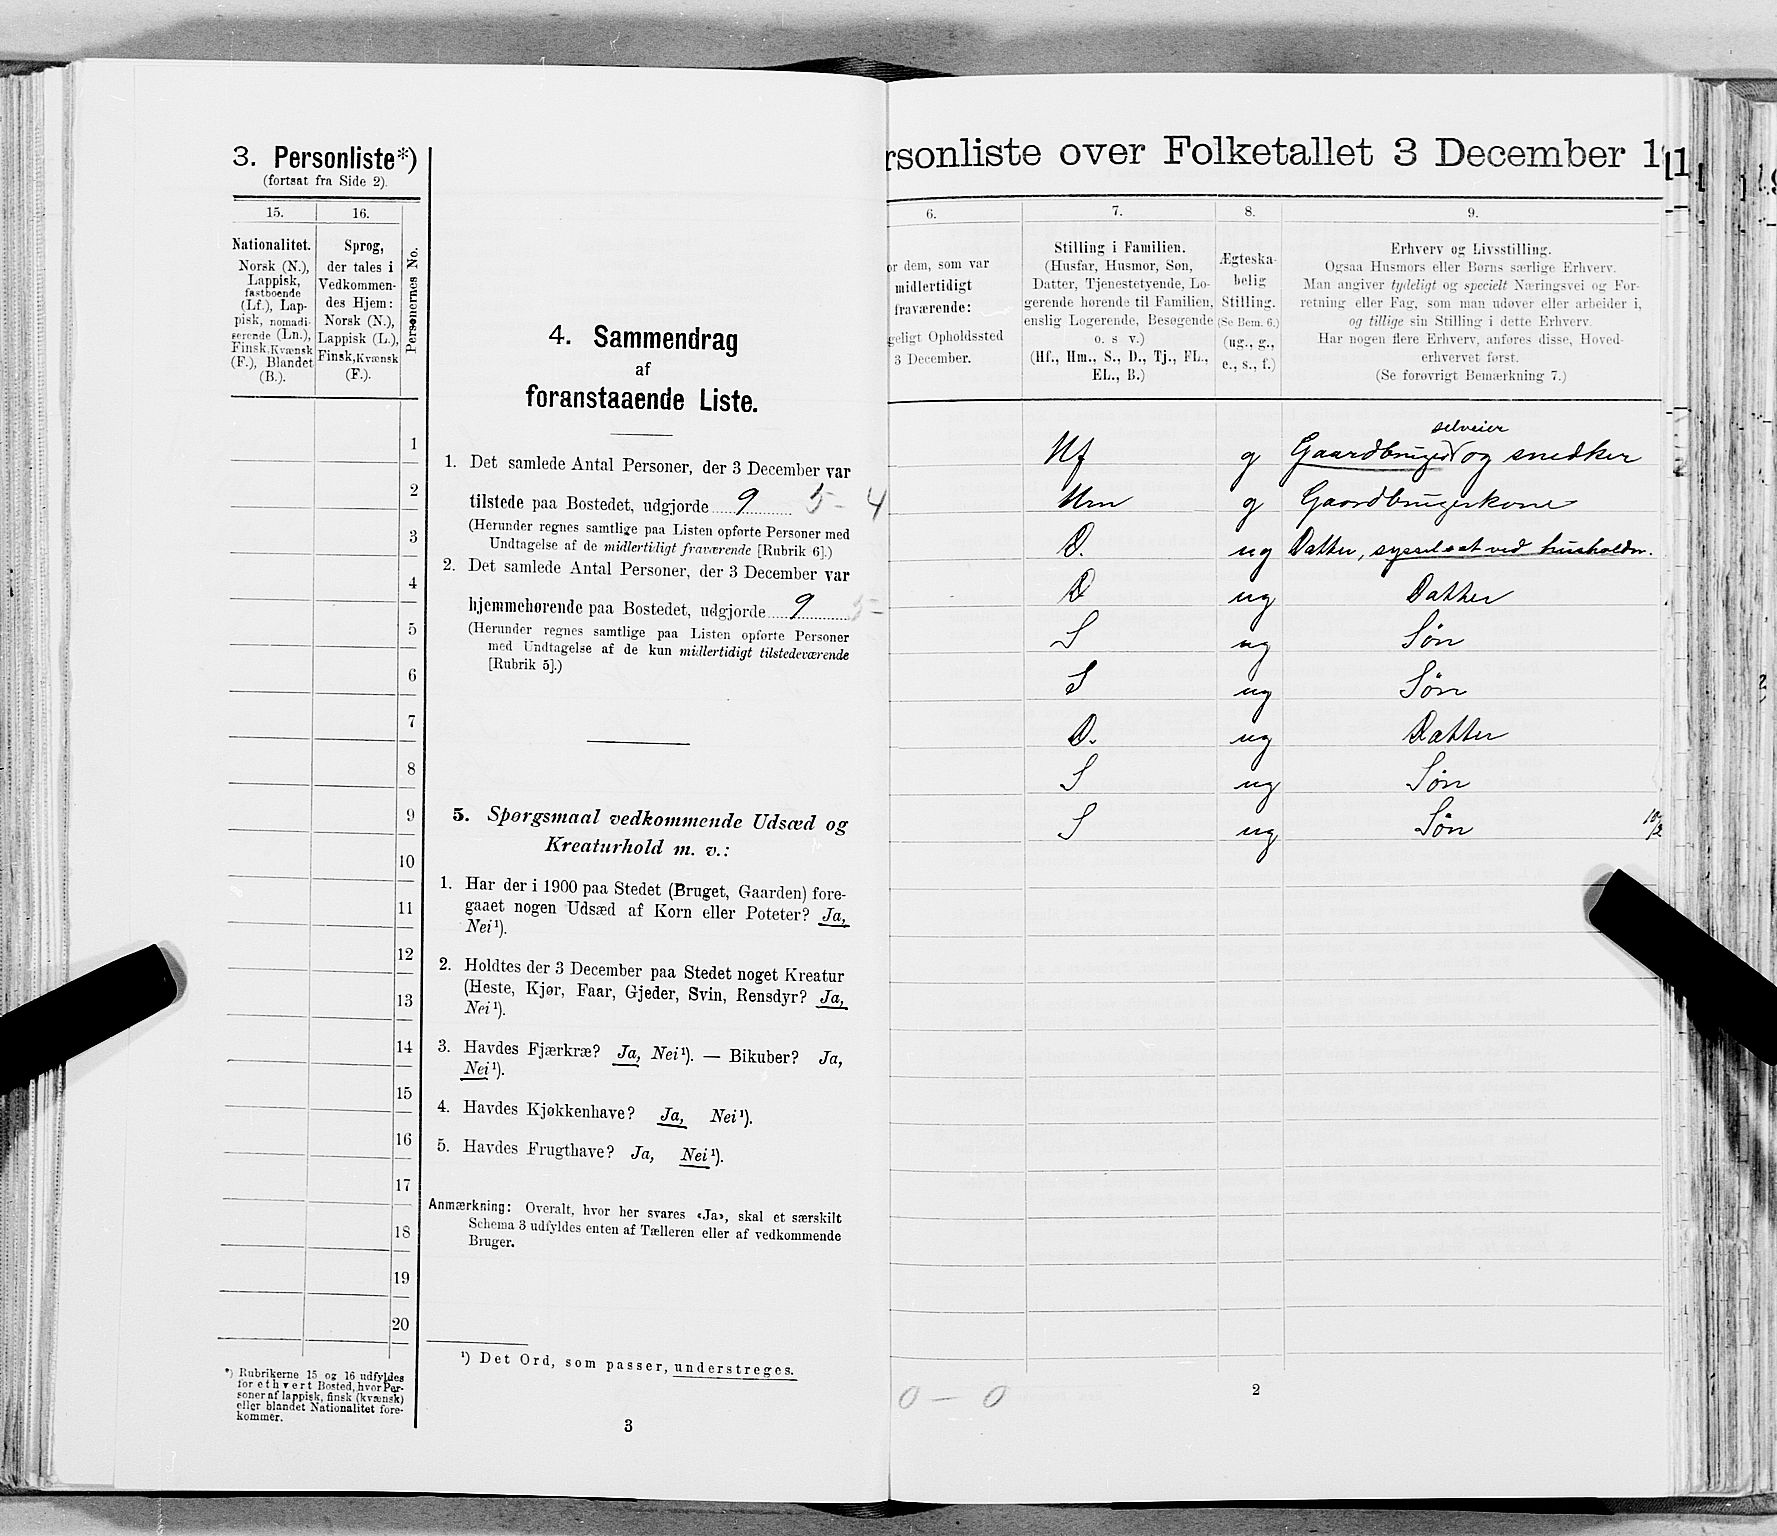 3. Personliste*)
(fortsat fra Side 2).
15.
16.
Nationalitet.
Norsk (N.),
Lappisk,
fastboende
(Lf.), Lap-
pisk, nomadi-
serende (Ln.),
Finsk, Kvænsk
(F.), Blandet
(B.).
Sprog,
der tales i
Vedkommen-
des Hjem:
Norsk (N.),
Lappisk (L.),
Finsk, Kvænsk
(F.).
Personernes No.
1
2
3
4
5
6
7
8
9
10
11
12
13
14
15
16
17
18
19
20
*) Rubrikerne 15 og 16 udfyldes
for ethvert Bosted, hvor Per-
soner af lappisk, finsk (kvænsk)
eller blandet Nationalitet fore-
kommer.
4. Sammendrag
af
foranstaaende Liste.
1. Det samlede Antal Personer, der 3 December var
tilstede paa Bostedet, udgjorde 9 5 - 4
(Herunder regnes samtlige paa Listen opførte Personer med
Undtagelse af de midlertidigt fraværende [Rubrik 6].)
2. Det samlede Antal Personer, der 3 December var
hjemmehørende paa Bostedet, udgjorde 9 5 -
(Herunder regnes samtlige paa Listen opførte Personer
med Undtagelse af de kun midlertidigt tilstedeværende
[Rubrik 5].)
5. Spørgsmaal vedkommende Udsæd og
Kreaturhold m. v.:
1. Har der i 1900 paa Stedet (Bruget, Gaarden) fore-
gaaet nogen Udsæd af Korn eller Poteter? Ja,
Nei¹).
2. Holdtes der 3 December paa Stedet noget Kreatur
(Heste, Kjør, Faar, Gjeder, Svin, Rensdyr? Ja,
Nei¹).
3. Havdes Fjærkræ? Ja, Nei¹). — Bikuber? Ja,
Nei¹).
4. Havdes Kjøkkenhave? Ja, Nei¹).
5. Havdes Frugthave? Ja, Nei¹).
Anmærkning: Overalt, hvor her svares «Ja», skal et særskilt
Schema 3 udfyldes enten af Tælleren eller af vedkommende
Bruger.
¹) Det Ord, som passer, understreges.
3
rsonliste over Folketallet 3 December 1
6.
7.
8.
9.
or dem, som var
midlertidigt
fraværende:
geligt Opholdssted
3 December.
Stilling i Familien.
(Husfar, Husmor, Søn,
Datter, Tjenestetyende, Lo-
gerende hørende til Familien,
enslig Logerende, Besøgende
o. s v.)
(Hf., Hm., S., D., Tj., FL.,
EL., B.)
Ægteska-
belig
Stilling.
(Se Bem. 6.)
(ug., g.,
e., s., f.)
Erhverv og Livsstilling.
Ogsaa Husmors eller Børns særlige Erhverv.
Man angiver tydeligt og specielt Næringsvei og For-
retning eller Fag, som man udøver eller arbeider i,
og tillige sin Stilling i dette Erhverv.
Har nogen flere Erhverv, anføres disse, Hoved-
erhvervet først.
(Se forøvrigt Bemærkning 7.)
selveier
Hf g Gaardbruger og snedker
Hm g Gaardbrugerkone
D. ug Datter, sysselsat ved husholdn.
D ug Datter
S ug Søn
S ug Søn
D. ug Datter
S ug Søn
S ug Søn 10/12
0 — 0
2